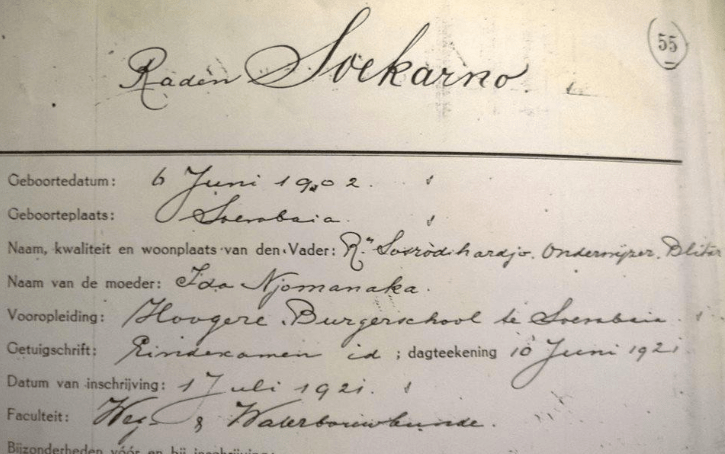 55
Raden Soekarno.
Geboortedatum: 6 Juni 1902.
Geboorteplaats: Soerabaia.
Naam, kwaliteit en woonplaats van den Vader: Rn Sosrodihardjo. Onderwijzer. Blitar
Naam van de moeder: Ida Njomanaka.
Vooropleiding: Hoogere Burgerschool te Soerabaia.
Getuigschrift: Eindexamen id; dagteekening 10 Juni 1921
Datum van inschrijving: 1 Juli 1921.
Faculteit: Weg & Waterbouwkunde.
Bijzonderheden vóór en bij inschrijving: